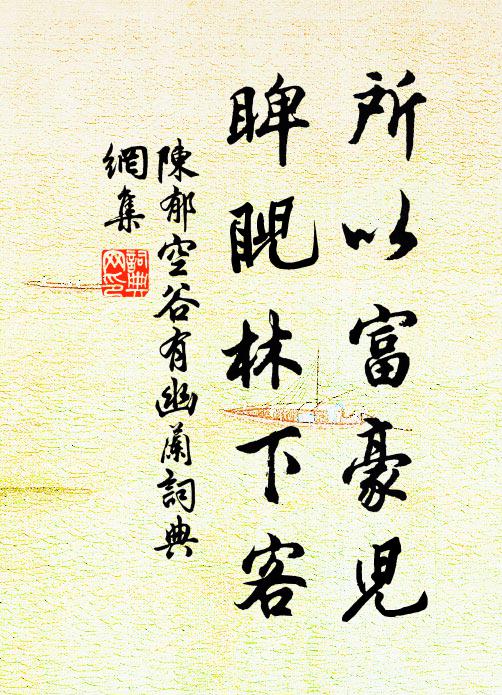 所以富豪児
睥睨林下客
陳郁空谷有幽蘭詞典
網集
詞典
网印